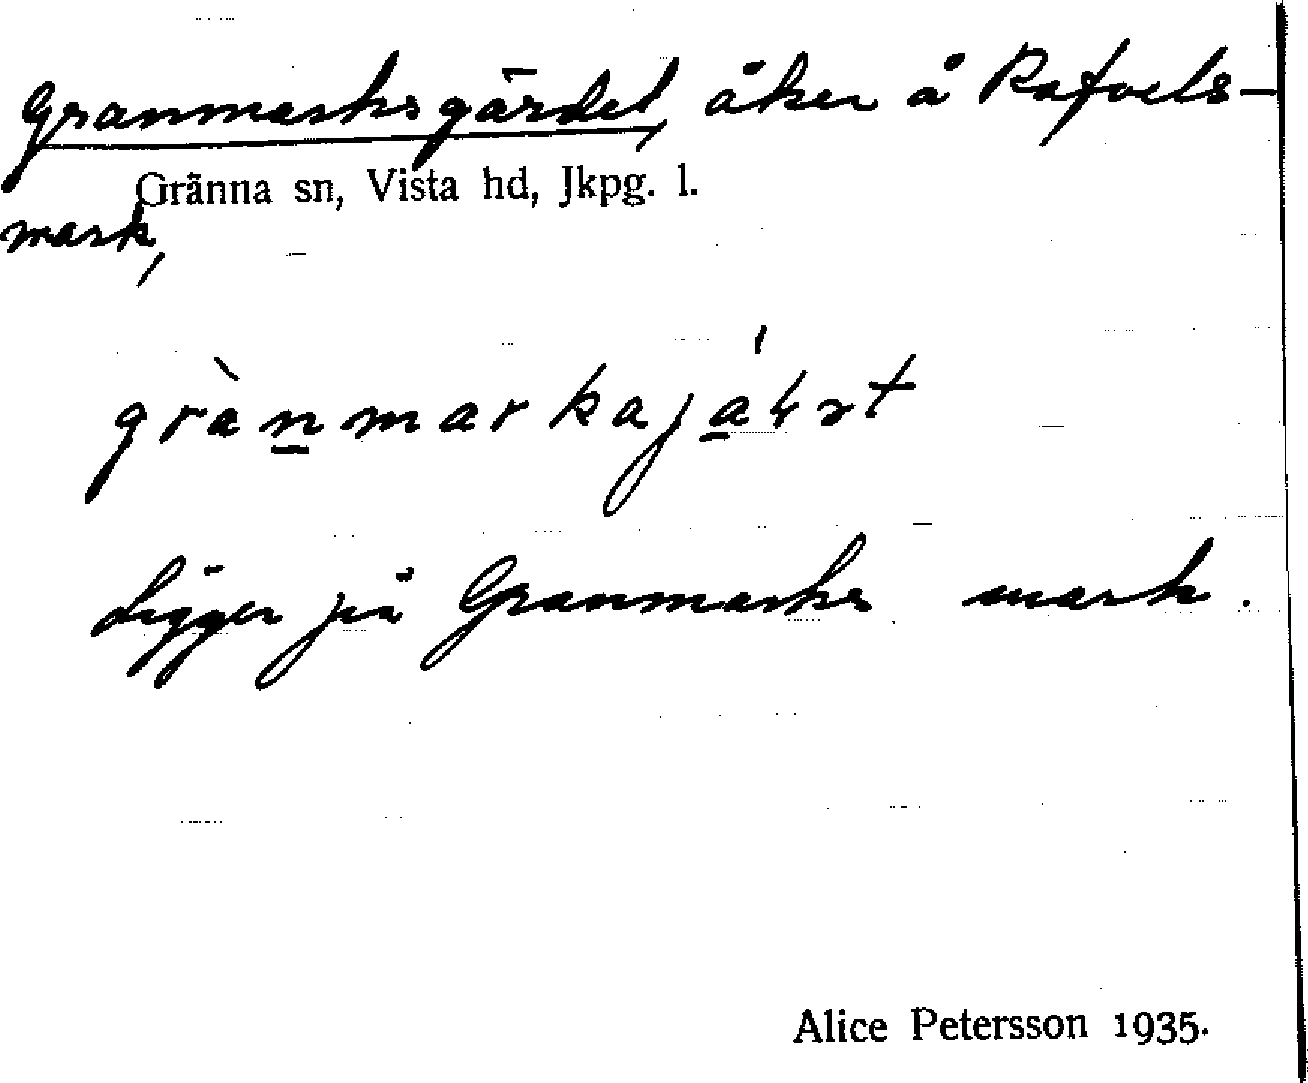 Granmarksgärdet, åker å Rafvels-
Gränna sn, Vista hd, Jkpg. l.
mark,
Ligger på Granmarks mark.
Alice Petersson 1935.